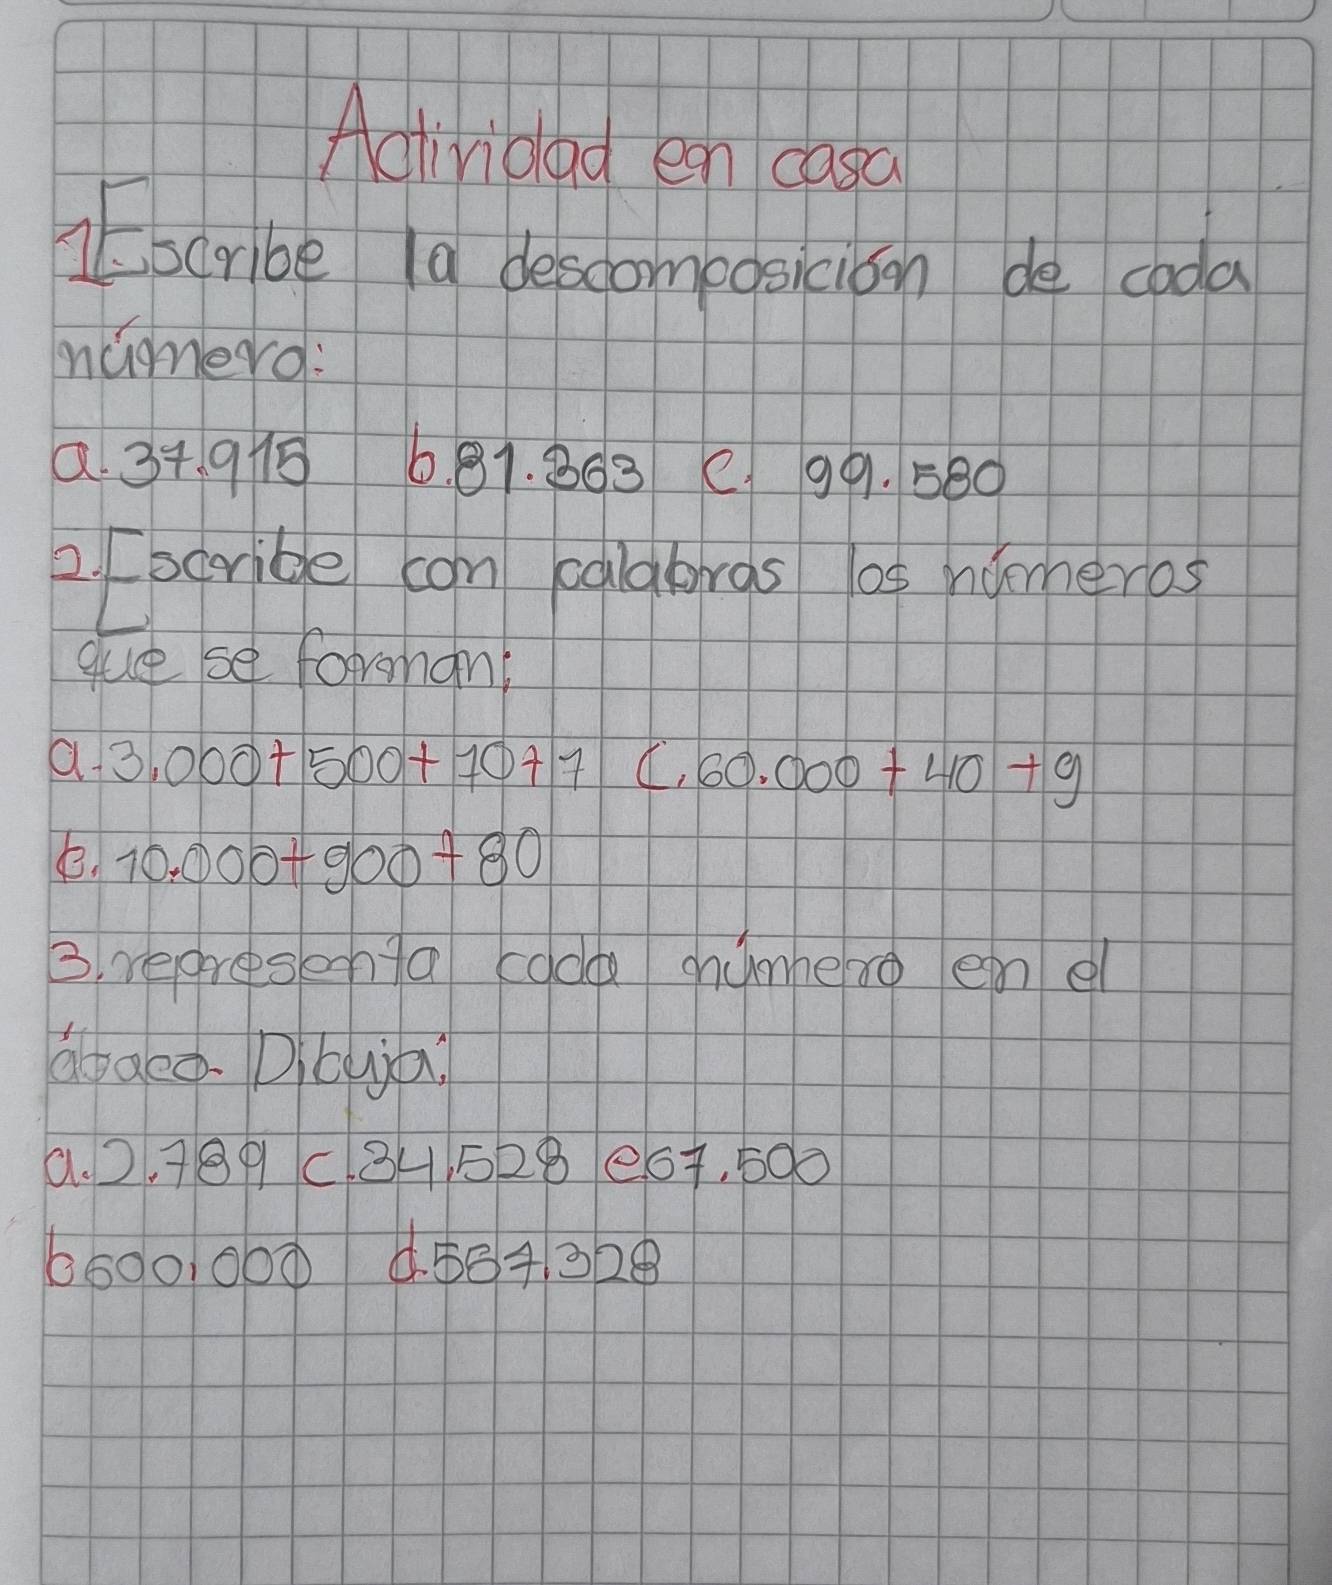 Actividad en casa
1. Escribe la descomposición de cada
número:
a. 37.915 b. 81.363 c. 99.580
2. Escribe con palabras los números
que se forman:
a. 3.000+500+70+7 C. 60.000+40+9
b. 10.000+900+80
3. representa cada número en el
ábaco. Dibuja:
a. 2.789 c. 34.528 e 67.500
b 600.000 d. 567.328